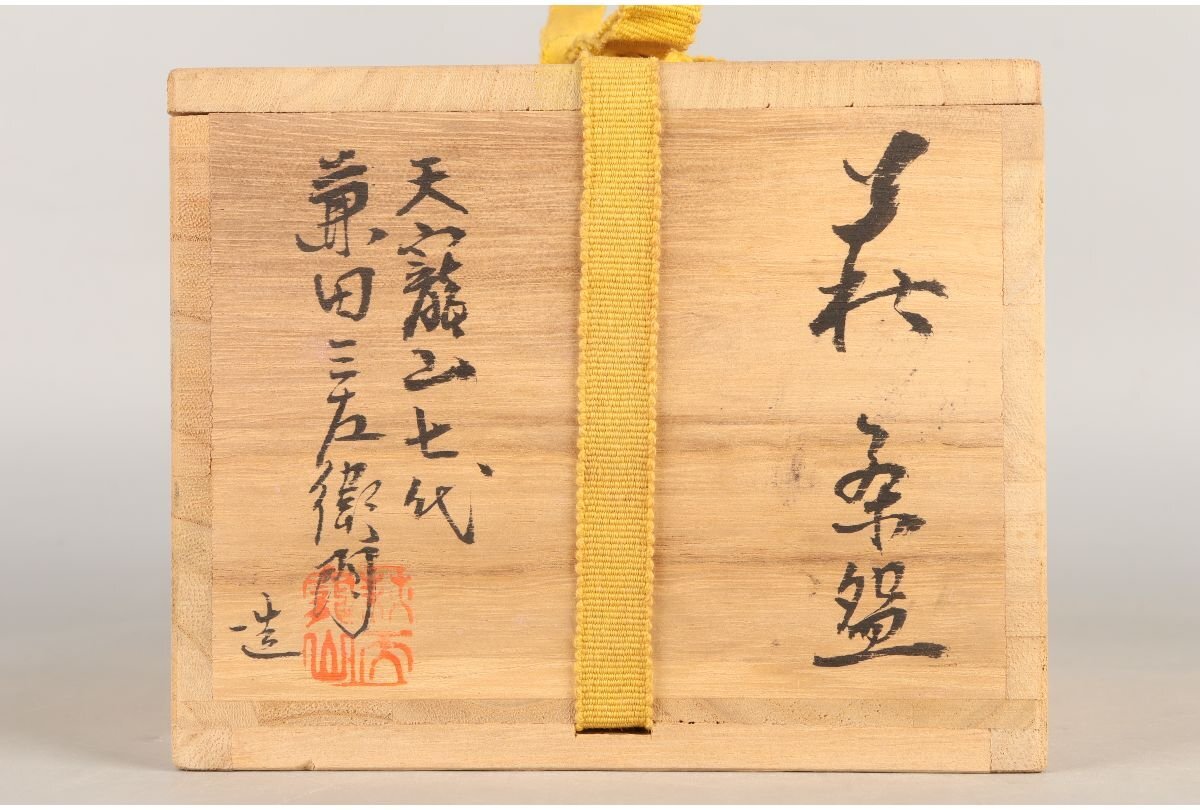 萩
茶盌
天寵山七代
兼田三左衛門
造